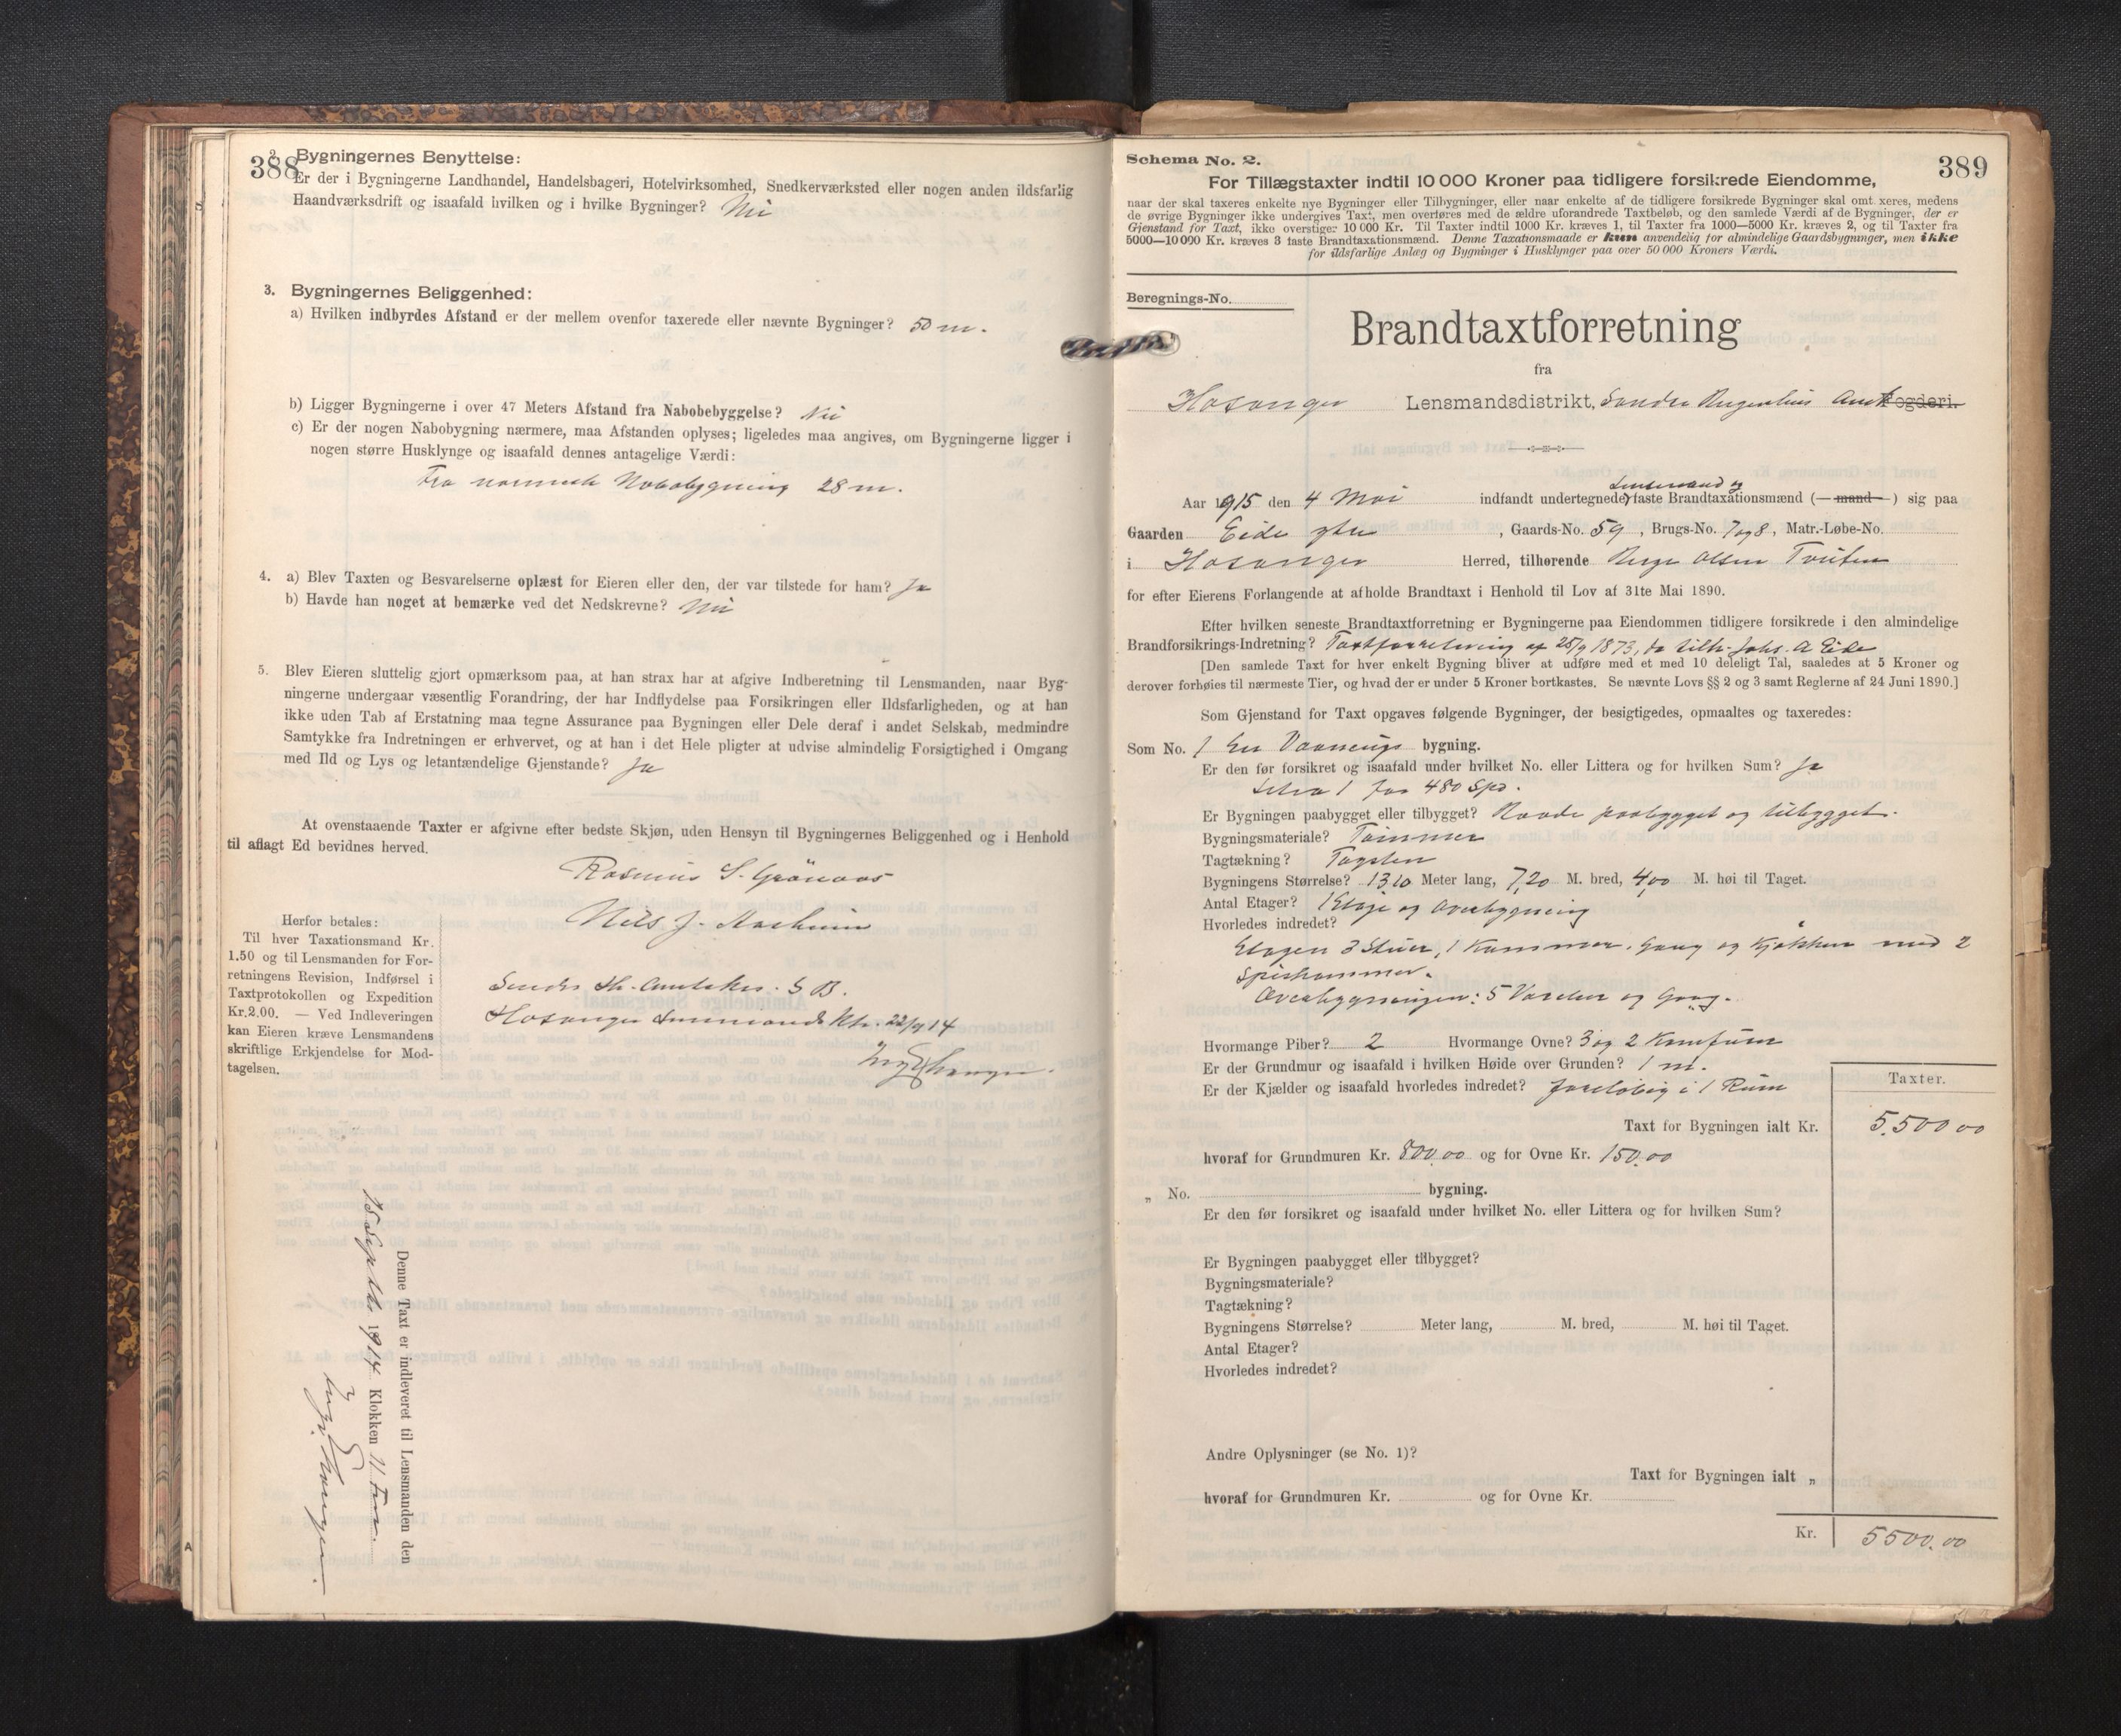 388
2. Bygningernes Benyttelse:
Er der i Bygningerne Landhandel, Handelsbageri, Hotelvirksomhed, Snedkerværksted eller nogen anden ildsfarlig
Haandværksdrift og isaafald hvilken og i hvilke Bygninger? Nei
3. Bygningernes Beliggenhed:
a) Hvilken indbyrdes Afstand er der mellem ovenfor taxerede eller nævnte Bygninger? 50 m.
b) Ligger Bygningerne i over 47 Meters Afstand fra Nabobebyggelse? Nei
c) Er der nogen Nabobygning nærmere, maa Afstanden oplyses; ligeledes maa angives, om Bygningerne ligger i
nogen større Husklynge og isaafald dennes antagelige Værdi:
Fra nærmeste Nabobygning 28 m.
4. a) Blev Taxten og Besvarelserne oplæst for Eieren eller den, der var tilstede for ham? Ja
b) Havde han noget at bemærke ved det Nedskrevne? Nei
5. Blev Eieren sluttelig gjort opmærksom paa, at han strax har at afgive Indberetning til Lensmanden, naar Byg-
ningerne undergaar væsentlig Forandring, der har Indflydelse paa Forsikringen eller Ildsfarligheden, og at han
ikke uden Tab af Erstatning maa tegne Assurance paa Bygningen eller Dele deraf i andet Selskab, medmindre
Samtykke fra Indretningen er erhvervet, og at han i det Hele pligter at udvise almindelig Forsigtighed i Omgang
med Ild og Lys og letantændelige Gjenstande? Ja
At ovenstaaende Taxter er afgivne efter bedste Skjøn, uden Hensyn til Bygningernes Beliggenhed og i Henhold
til aflagt Ed bevidnes herved.
Rasmus S. Grönaas
Nils J.
Herfor betales:
Til hver Taxationsmand Kr.
1.50 og til Lensmanden for For-
retningens Revision, Indførsel i
Taxtprotokollen og Expedition
Kr.2.00. — Ved Indleveringen
kan Eieren kræve Lensmandens
skriftlige Erkjendelse for Mod-
tagelsen.
Hosanger Lensmands Ktr. 22/9 14
Denne Taxt er indleveret til Lensmanden den
15 Septbr. 1914 Klokken 11 Form.
389
Schema No. 2.
For Tillægstaxter indtil 10 000 Kroner paa tidligere forsikrede Eiendomme,
naar der skal taxeres enkelte nye Bygninger eller Tilbygninger, eller naar enkelte af de tidligere forsikrede Bygninger skal omtaxeres, medens
de øvrige Bygninger ikke undergives Taxt, men overføres med de ældre uforandrede Taxtbeløb, og den samlede Værdi af de Bygninger, der er
Gjenstand for Taxt, ikke overstiger 10 000 Kr. Til Taxter indtil 1000 Kr. kræves 1, til Taxter fra 1000—5000 Kr. kræves 2, og til Taxter fra
5000—10 000 Kr. kræves 3 faste Brandtaxationsmænd. Denne Taxationsmaade er kun anvendelig for almindelige Gaardsbygninger, men ikke
for ildsfarlige Anlæg og Bygninger i Husklynger paa over 50 000 Kroners Værdi.
Beregnings-No.
Brandtaxtforretning
fra
Hosanger Lensmandsdistrikt, Søndre Bergenhus Amt Fogderi.
Lensmand og
Aar 1915 den 4 Mai indfandt undertegnede faste Brandtaxationsmænd (— mand —) sig paa
Gaarden Eide ytre, Gaards-No. 59, Brugs-No. 7 og 8, Matr.-Løbe-No.
i Hosanger Herred, tilhørende Berge Olsen Tveiten
for efter Eierens Forlangende at afholde Brandtaxt i Henhold til Lov af 31te Mai 1890.
Efter hvilken seneste Brandtaxtforretning er Bygningerne paa Eiendommen tidligere forsikrede i den almindelige
Brandforsikrings-Indretning? Taxtforretning af 25/9 1873, da tilh. Johs. A Eide
[Den samlede Taxt for hver enkelt Bygning bliver at udføre med et med 10 deleligt Tal, saaledes at 5 Kroner og
derover forhøies til nærmeste Tier, og hvad der er under 5 Kroner bortkastes. Se nævnte Lovs §§ 2 og 3 samt Reglerne af 24 Juni 1890.]
Som Gjenstand for Taxt opgaves følgende Bygninger, der besigtigedes, opmaaltes og taxeredes:
Som No. 1 En Vaanings bygning.
Er den før forsikret og isaafald under hvilket No. eller Littera og for hvilken Sum? Ja
Litra 1 for 480 Spd.
Er Bygningen paabygget eller tilbygget? Baade paabygget og tilbygget.
Bygningsmateriale? Tømmer
Tagtækning? Tagsten
Bygningens Størrelse? 13,10 Meter lang, 7,20 M. bred, 4,00 M. høi til Taget.
Antal Etager? 1 Etage og Overbygning
Hvorledes indredet?
Etagen 3 Stuer, 1 Kammer, Gang og Kjøkken med 2
Spiskammer.
Overbygningen: 5 Værelser og Gang.
Hvormange Piber? 2 Hvormange Ovne? 3 og 2 Komfurer
Er der Grundmur og isaafald i hvilken Høide over Grunden? 1 m.
Er der Kjælder og isaafald hvorledes indredet? foreløbig i 1 Rum
Taxter.
Taxt for Bygningen ialt Kr. 5.500 00
hvoraf for Grundmuren Kr. 800.00 og for Ovne Kr. 150.00
„ No. bygning.
Er den før forsikret og isaafald under hvilket No. eller Littera og for hvilken Sum?
Er Bygningen paabygget eller tilbygget?
Bygningsmateriale?
Tagtækning?
Bygningens Størrelse? Meter lang, M. bred, M. høi til Taget.
Antal Etager?
Hvorledes indredet?
Andre Oplysninger (se No. 1)?
Taxt for Bygningen ialt „
hvoraf for Grundmuren Kr. og for Ovne Kr.
Kr. 5500.00